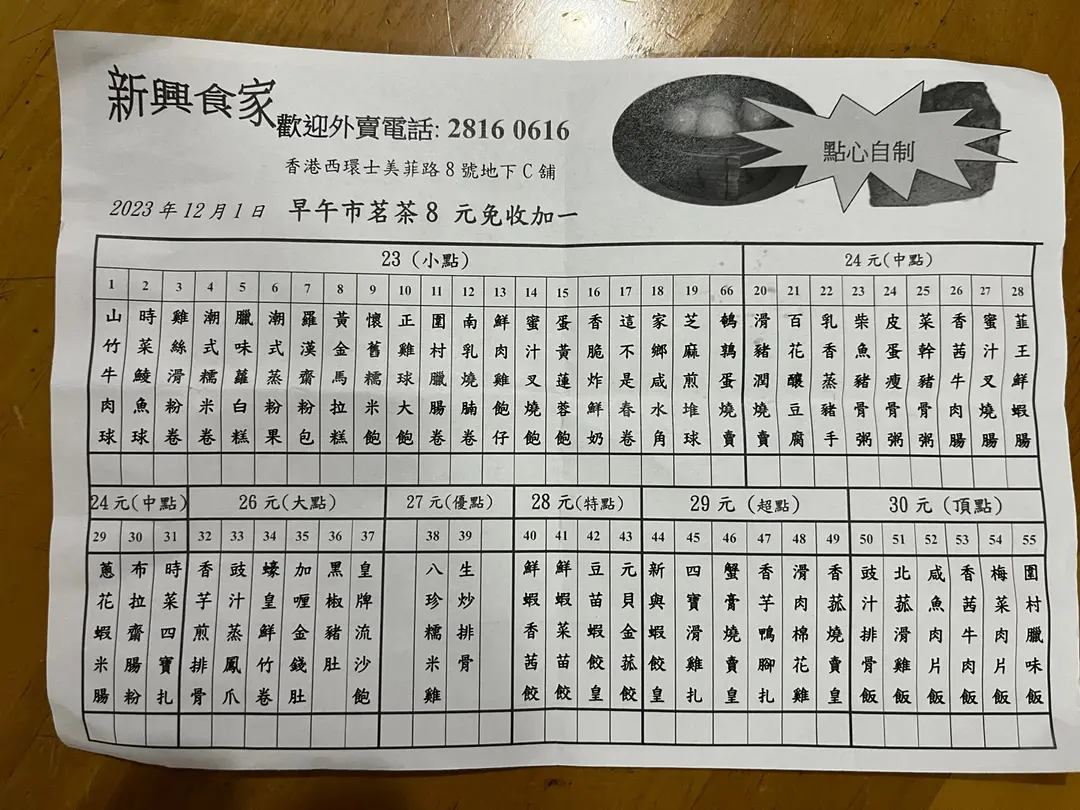 新興食家
歡迎外賣電話: 2816 0616
香港西環士美菲路 8 號地下 C 舖
點心自制
2023 年 12 月 1 日 早午市茗茶 8 元免收加一
23 (小點)
1 山竹牛肉球
2 時菜鯪魚球
3 雞絲滑粉卷
4 潮式糯米卷
5 臘味蘿白糕
6 潮式蒸粉果
7 羅漢齋粉包
8 黃金馬拉糕
9 懷舊糯米飽
10 正雞球大飽
11 圍村臘腸卷
12 南乳燒腩卷
13 鮮肉雞飽仔
14 蜜汁叉燒飽
15 蛋黃蓮蓉飽
16 香脆炸鮮奶
17 這不是春卷
18 家鄉咸水角
19 芝麻煎堆球
66 鵪鶉蛋燒賣
24 元(中點)
20 滑豬潤燒賣
21 百花釀豆腐
22 乳香蒸豬手
23 柴魚豬骨粥
24 皮蛋瘦骨粥
25 菜幹豬骨粥
26 香茜牛肉腸
27 蜜汁叉燒腸
28 韮王鮮蝦腸
24 元(中點)
29 蔥花蝦米腸
30 布拉齋腸粉
31 時菜四寶扎
26 元(大點)
32 香芋煎排骨
33 豉汁蒸鳳爪
34 蠔皇鮮竹卷
35 加喱金錢肚
36 黑椒豬肚
37 皇牌流沙飽
27 元(優點)
38 八珍糯米雞
39 生炒排骨
28 元(特點)
40 鮮蝦香茜餃
41 鮮蝦菜苗餃
42 豆苗蝦餃皇
43 元貝金菰餃
29 元 (超點)
44 新興蝦餃皇
45 四寶滑雞扎
46 蟹膏燒賣皇
47 香芋鴨腳扎
48 滑肉棉花雞
49 香菰燒賣皇
30 元 (頂點)
50 豉汁排骨飯
51 北菰滑雞飯
52 咸魚肉片飯
53 香茜牛肉飯
54 梅菜肉片飯
55 圍村臘味飯